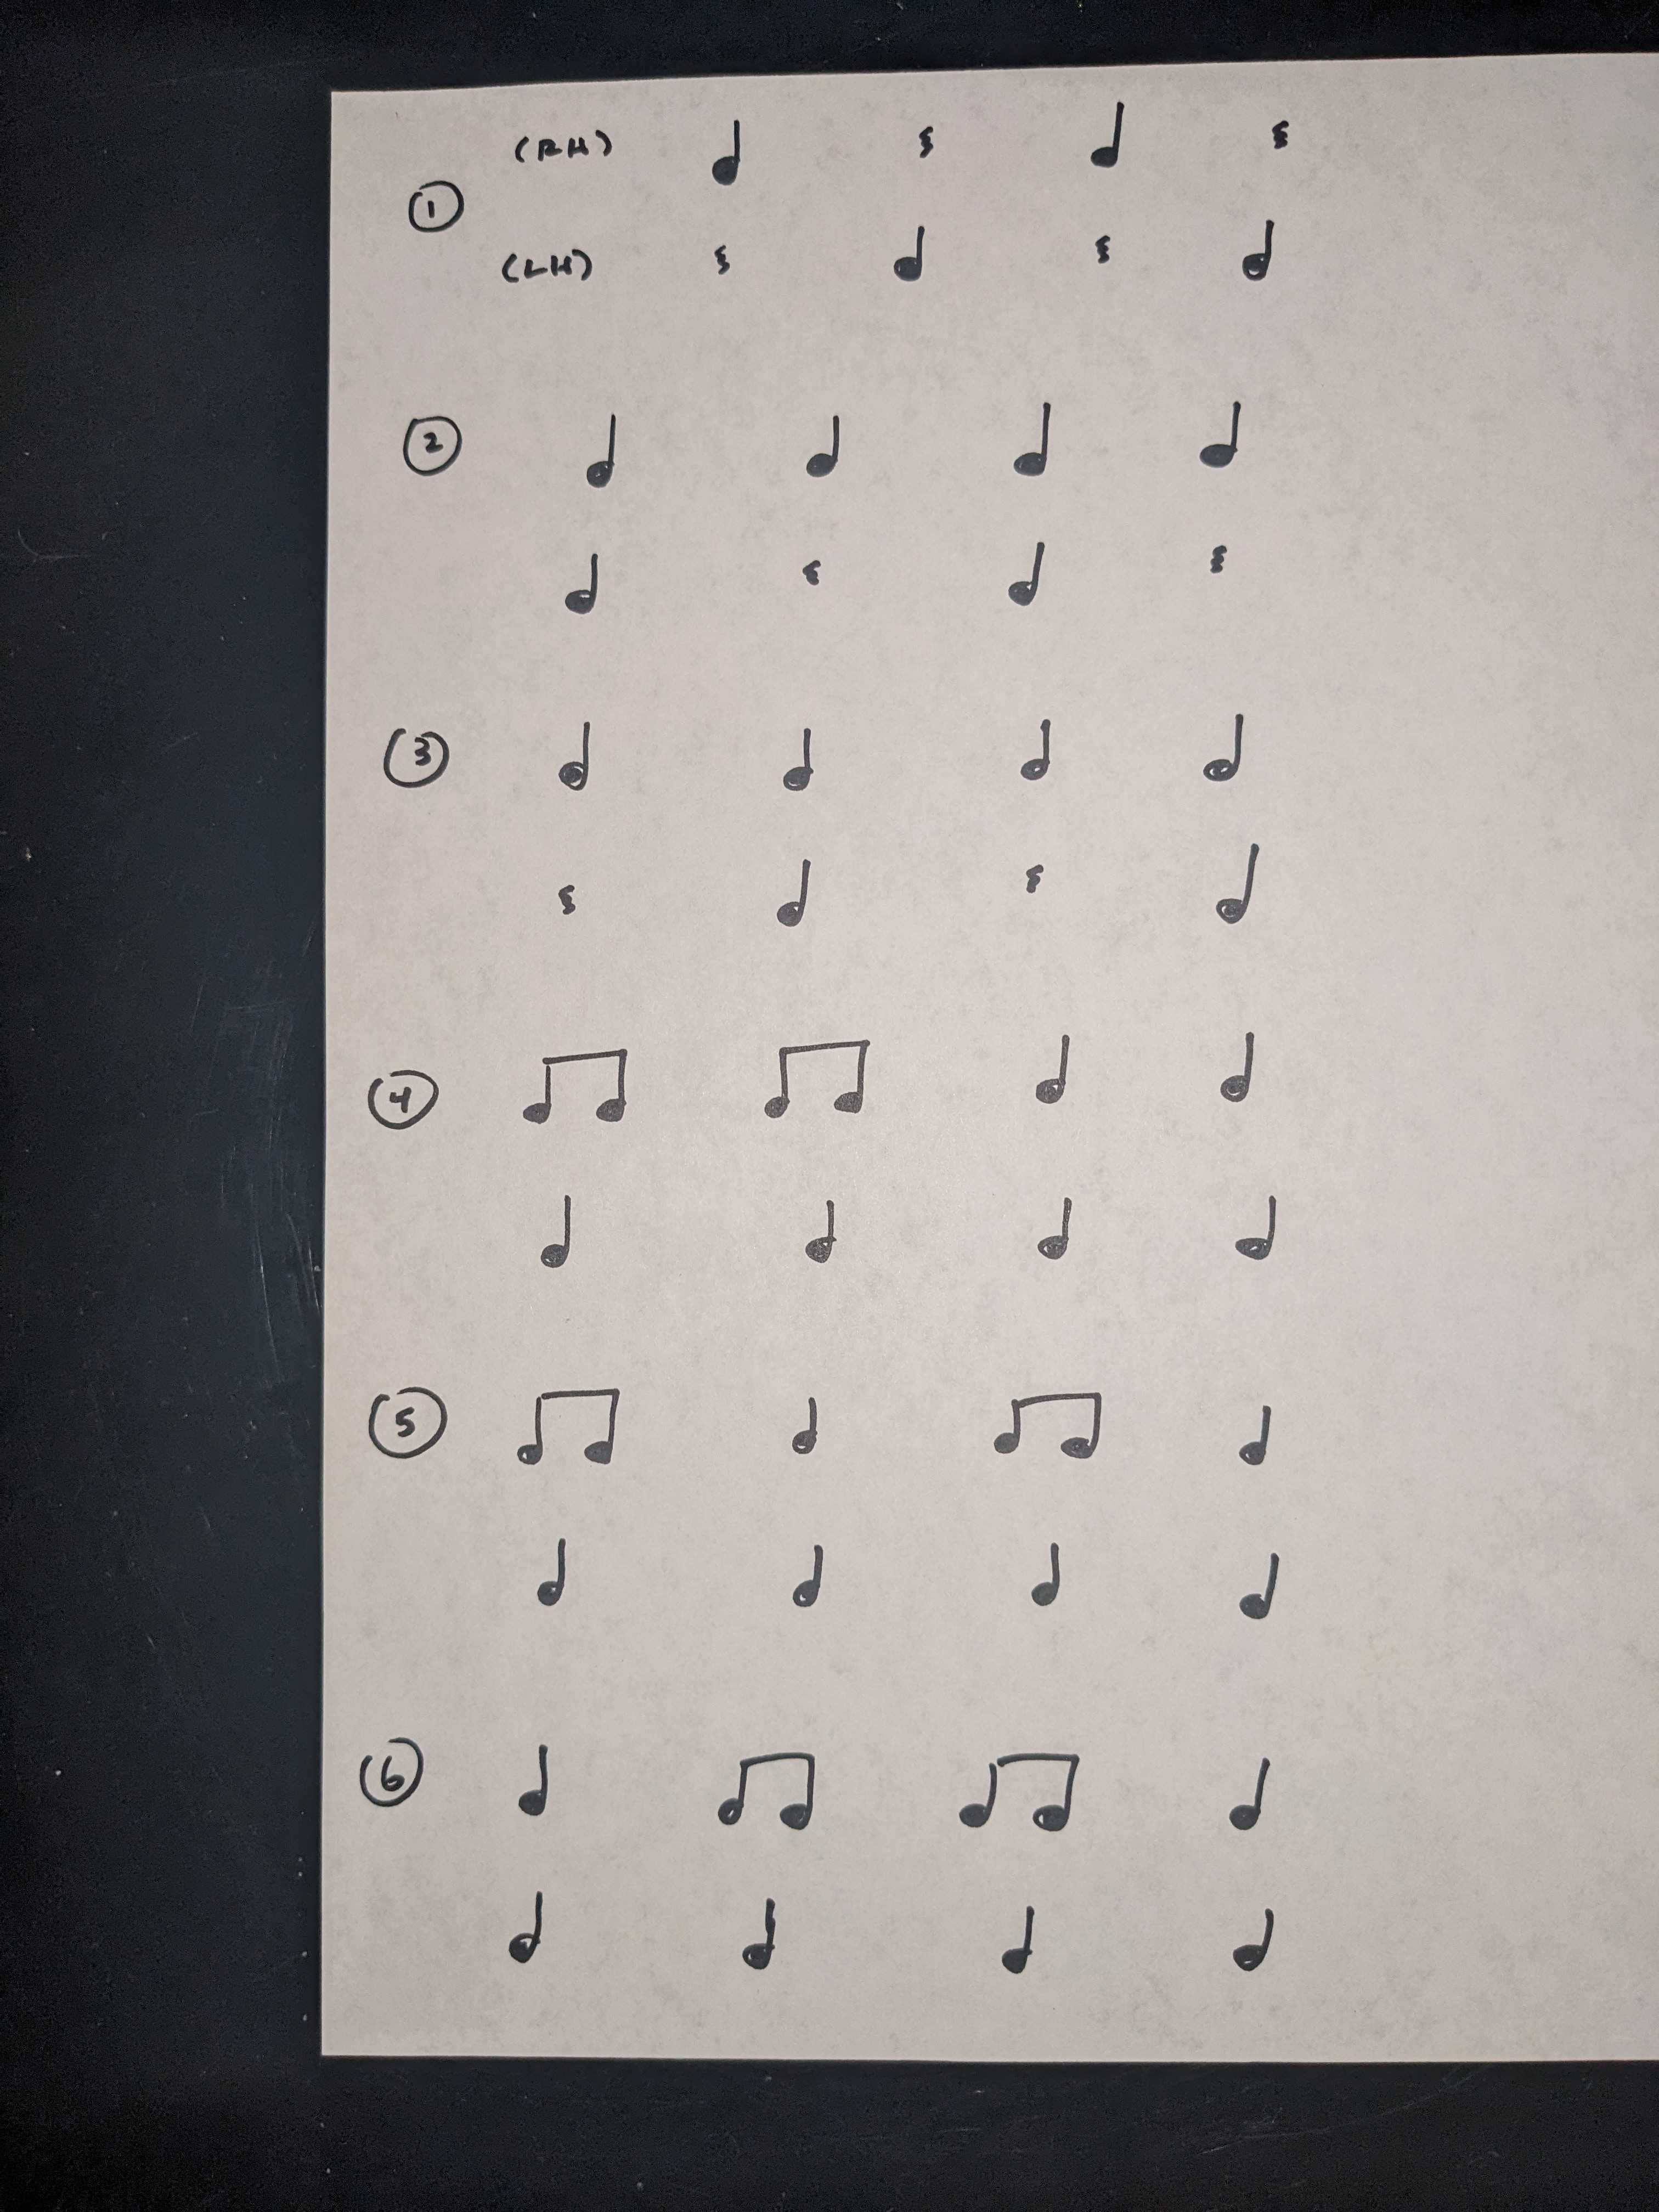 (RH)
①
(LH)
②
③
④
⑤
⑥